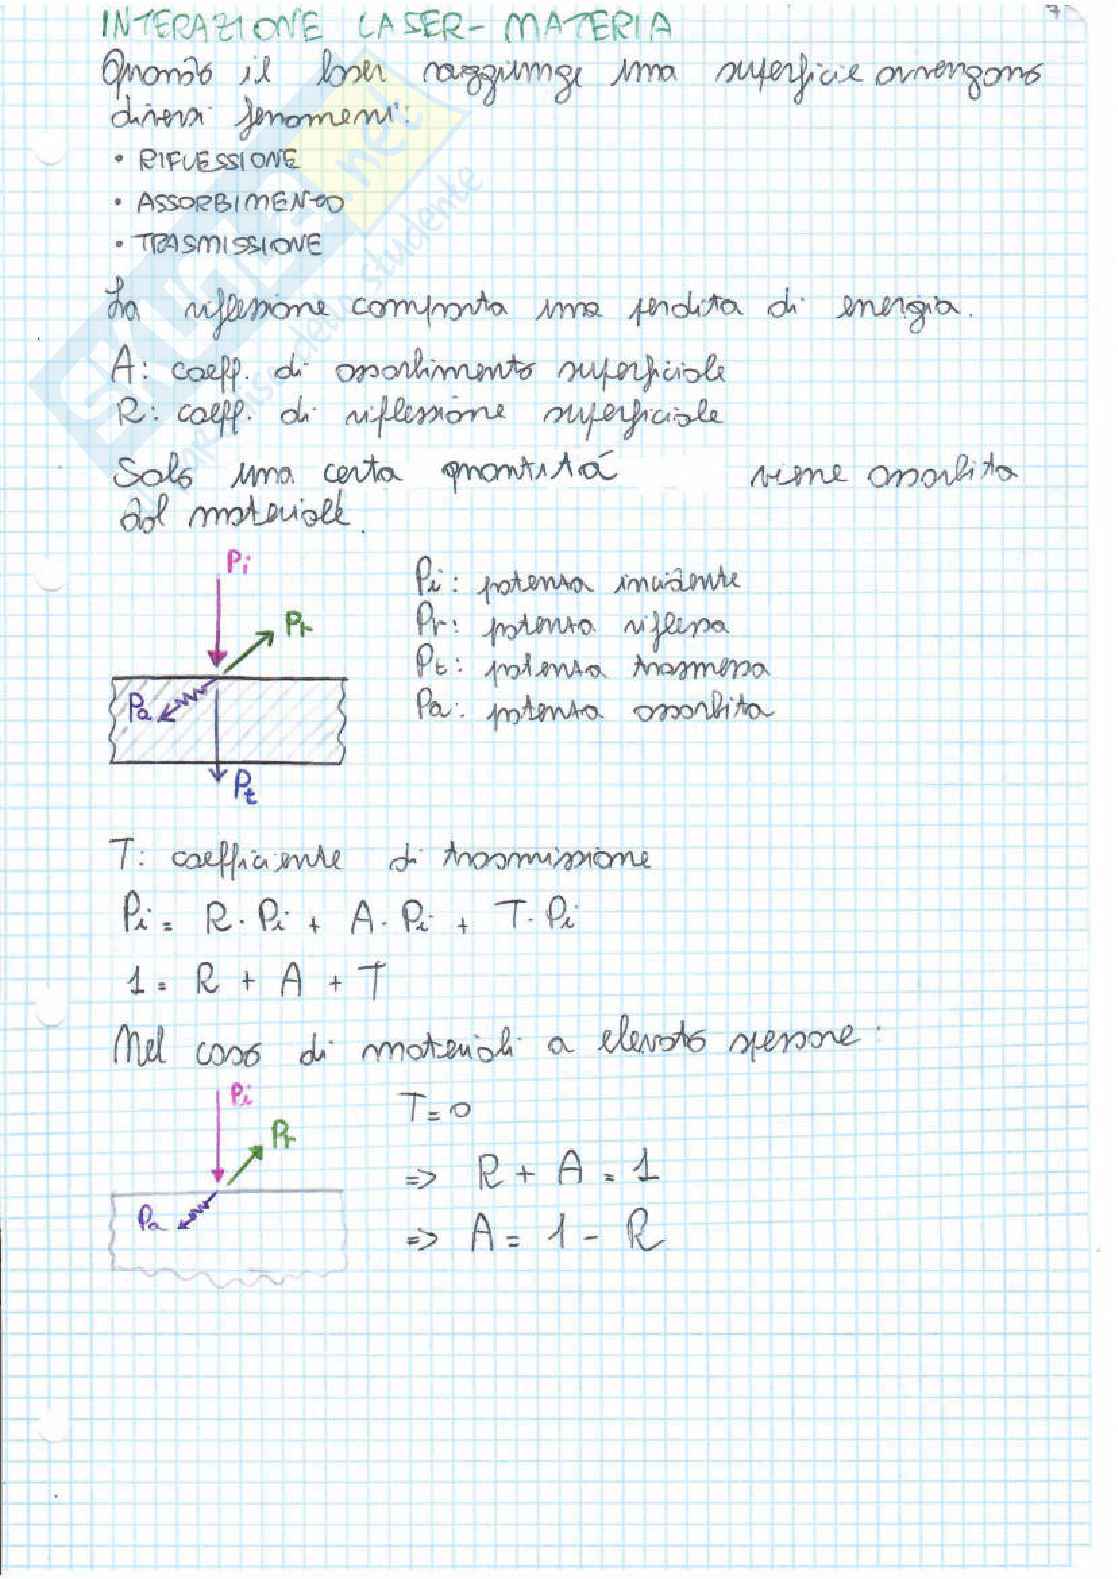 7
INTERAZIONE LASER-MATERIA
Quando il laser raggiunge una superficie avvengono
diversi fenomeni:
• RIFLESSIONE
• ASSORBIMENTO
• TRASMISSIONE
La riflessione comporta una perdita di energia.
A: coeff. di assorbimento superficiale
R: coeff. di riflessione superficiale
Solo una certa quantitá viene assorbita
dal materiale.
Pi
Pr
Pa
Pt
Pi: potenza incidente
Pr: potenza riflessa
Pt: potenza trasmessa
Pa: potenza assorbita
T: coefficiente di trasmissione
Pi = R · Pi + A · Pi + T · Pi
1 = R + A + T
Nel caso di materiali a elevato spessore:
Pi
Pr
Pa
T = 0
=> R + A = 1
=> A = 1 - R
SKUOLA.net
dello studente